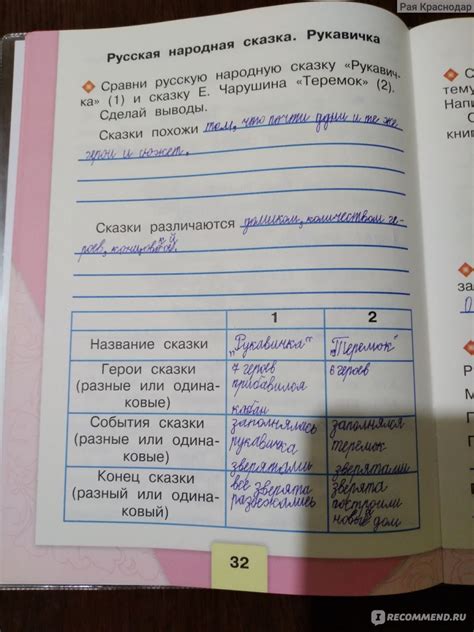 Рая Краснодар
Русская народная сказка. Рукавичка
Сравни русскую народную сказку «Рукавич-
ка» (1) и сказку Е. Чарушина «Теремок» (2).
Сделай выводы.
Сказки похожи том, что почти одни и те же
герои и сюжет.
Сказки различаются домиком, количеством ге-
роев, концовкой.
1 2
Название сказки „Рукавичка“ „Теремок“
Герои сказки 7 героев 6 героев
(разные или одина- прибавился
ковые) кабан
События сказки заполнялась заполнялся
(разные или одина- рукавичка теремок
ковые) зверятами зверятами
Конец сказки все зверята зверята
(разный или одина- разбежались построили
ковый) новый дом
32
тему
Напи
книг
за
I RECOMMEND.RU